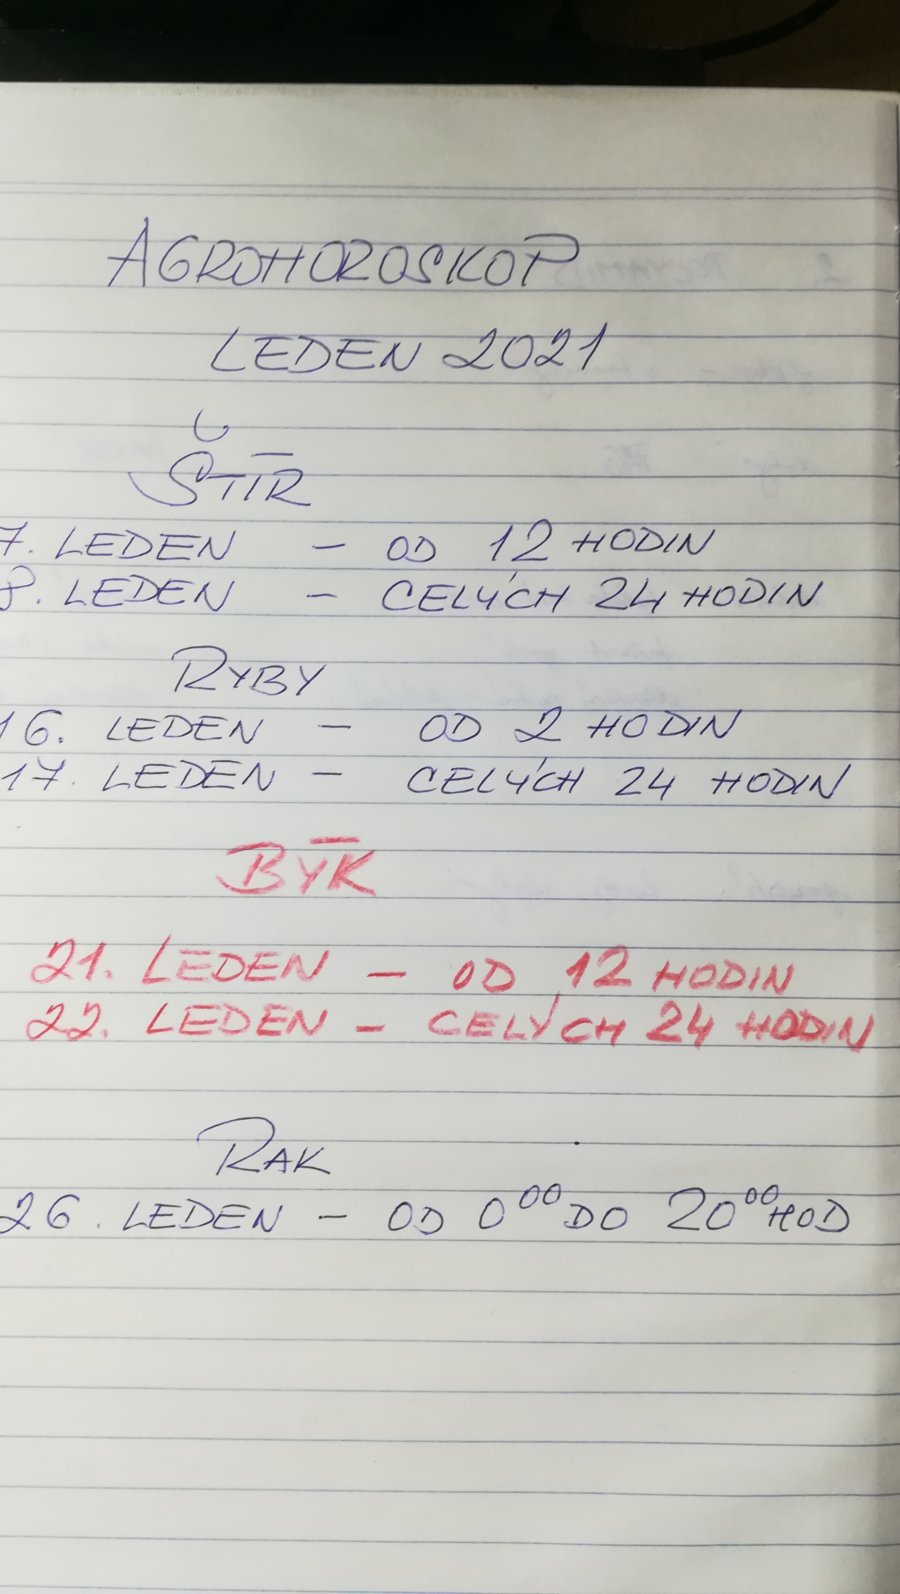 AGROHOROSKOP
LEDEN 2021
ŠTÍR
7. LEDEN - OD 12 HODIN
8. LEDEN - CELÝCH 24 HODIN
RYBY
16. LEDEN - OD 2 HODIN
17. LEDEN - CELÝCH 24 HODIN
BÝK
21. LEDEN - OD 12 HODIN
22. LEDEN - CELÝCH 24 HODIN
RAK
26. LEDEN - OD 0⁰⁰ DO 20⁰⁰ HOD